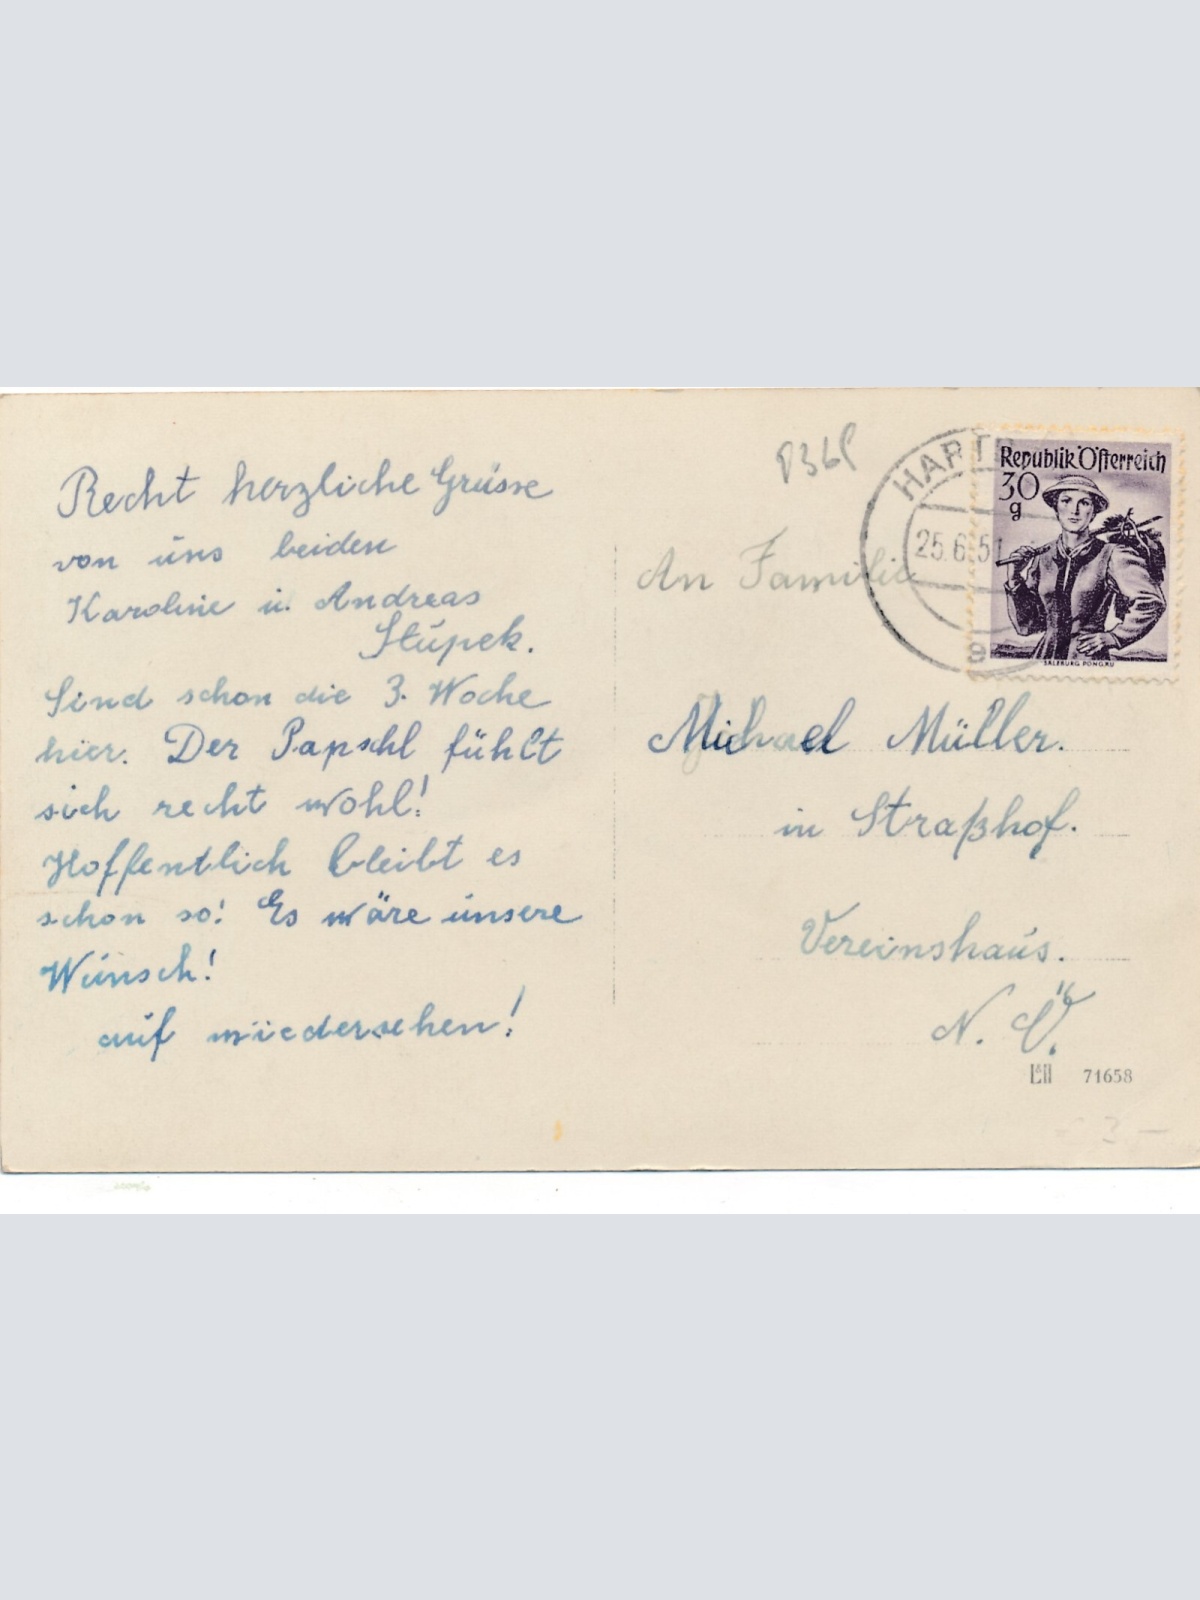 Recht herzliche Grüsse
von uns beiden
Karoline u. Andreas
Stupek.
Sind schon die 3. Woche
hier. Der Papschl fühlt
sich recht wohl!
Hoffentlich bleibt es
schon so! Es wäre unsere
Wunsch!
auf wiedersehen!
P36P
HART
25.6.51
9
Republik Österreich
30
g
SALZBURG PONGAU
An Familie
Michael Müller.
in Straßhof.
Vereinshaus.
N. Ö.
71658